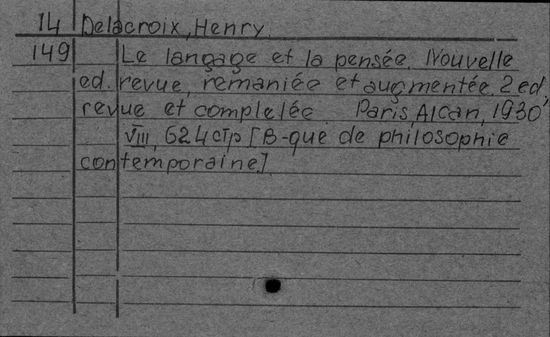 14 Delacroix, Henry.
149 Le langage et la pensée. Nouvelle
ed. revue, remaniée et augmentée. 2 ed.,
revue et complelée. Paris, Alcan, 1930
VIII, 624 стр [B-que de philosophie
contemporaine]